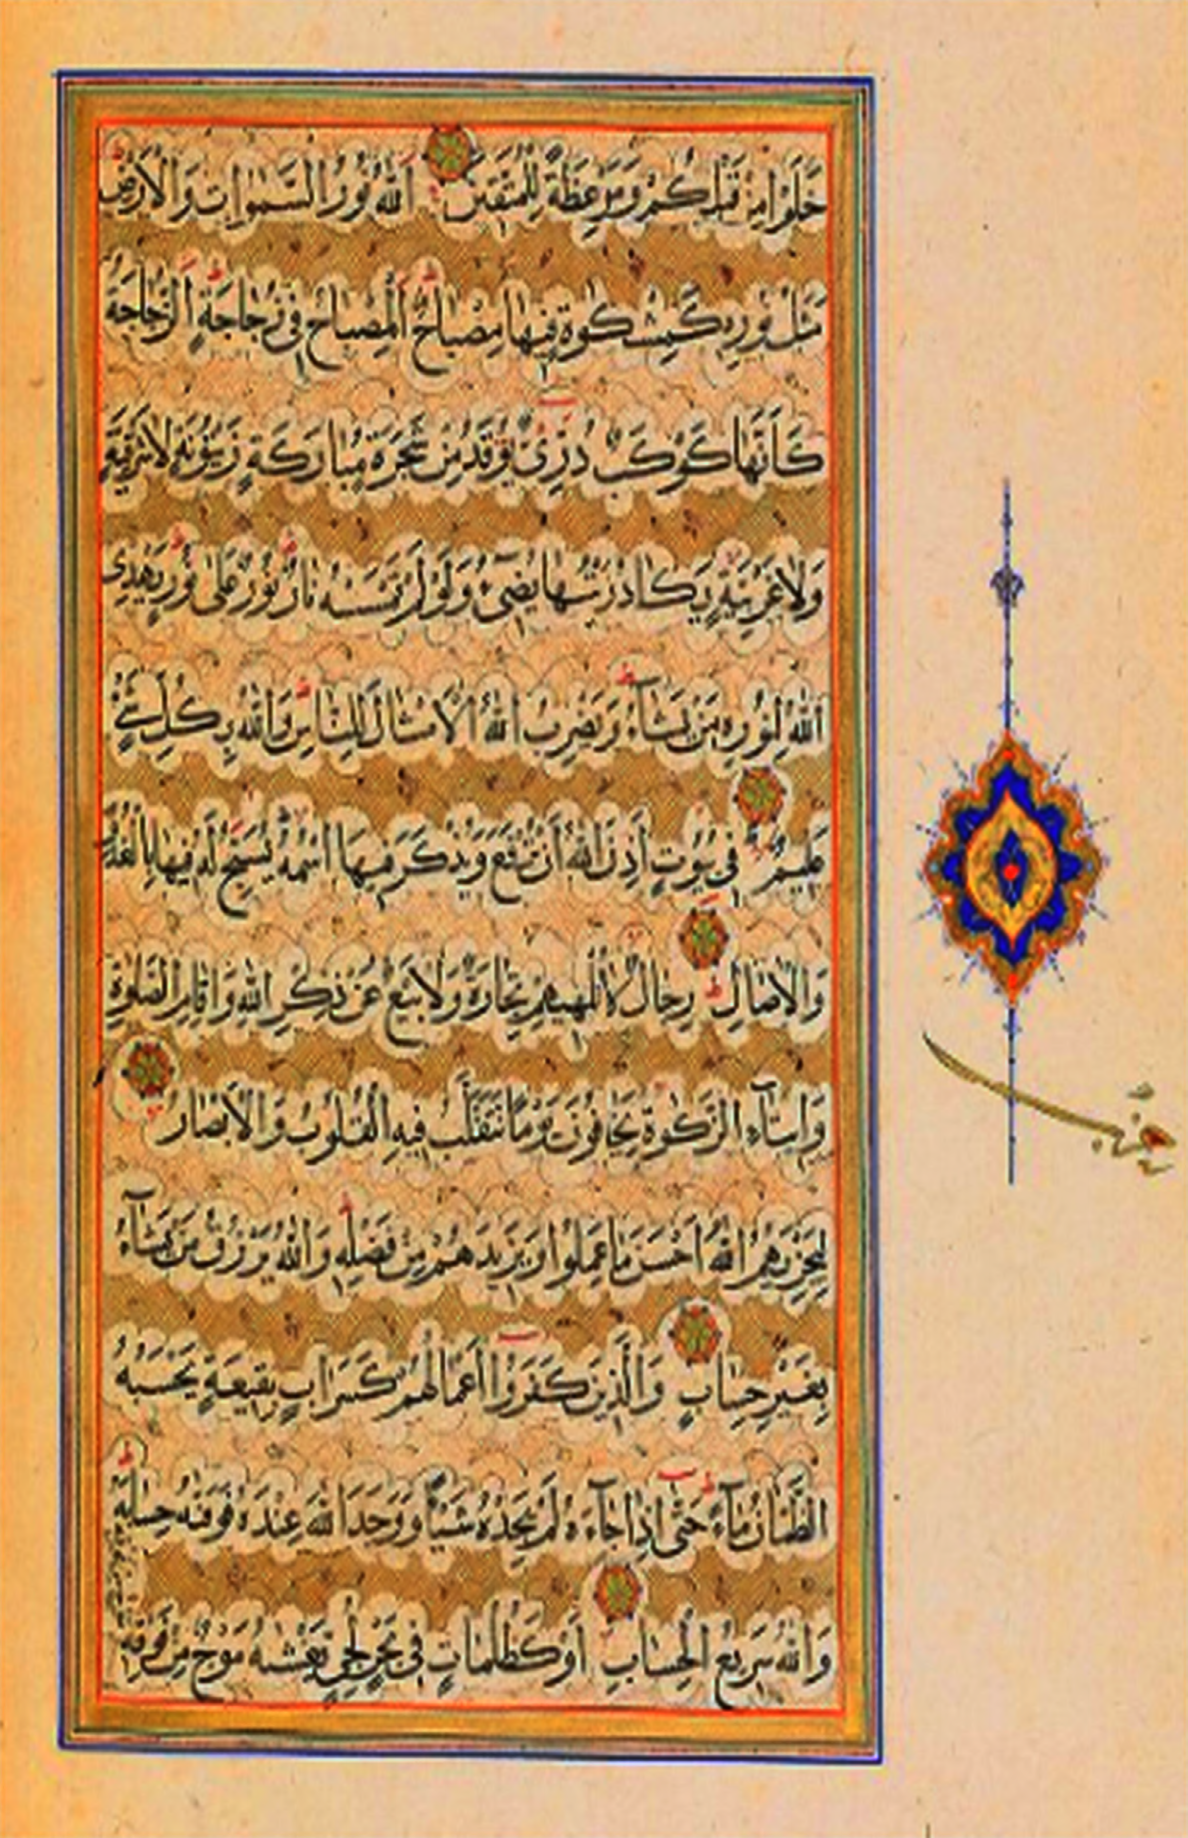 خَلَوْا مِنْ قَبْلِكُمْ وَمَوْعِظَةً لِلْمُتَّقِينَ اَللّٰهُ نُورُ السَّمٰوَاتِ وَالْاَرْضِ
مَثَلُ نُورِهِ كَمِشْكٰوةٍ فِيهَا مِصْبَاحٌ اَلْمِصْبَاحُ فِى زُجَاجَةٍ اَلزُّجَاجَةُ
كَاَنَّهَا كَوْكَبٌ دُرِّىٌّ يُوقَدُ مِنْ شَجَرَةٍ مُبَارَكَةٍ زَيْتُونَةٍ لَا شَرْقِيَّةٍ
وَلَا غَرْبِيَّةٍ يَكَادُ زَيْتُهَا يُضِىءُ وَلَوْ لَمْ تَمْسَسْهُ نَارٌ نُورٌ عَلٰى نُورٍ يَهْدِى
اللّٰهُ لِنُورِهِ مَنْ يَشَآءُ وَيَضْرِبُ اللّٰهُ الْاَمْثَالَ لِلنَّاسِ وَاللّٰهُ بِكُلِّ شَىْءٍ
عَلِيمٌ فِى بُيُوتٍ اَذِنَ اللّٰهُ اَنْ تُرْفَعَ وَيُذْكَرَ فِيهَا اسْمُهُ يُسَبِّحُ لَهُ فِيهَا بِالْغُدُوِّ
وَالْاٰصَالِ رِجَالٌ لَا تُلْهِيهِمْ تِجَارَةٌ وَلَا بَيْعٌ عَنْ ذِكْرِ اللّٰهِ وَاِقَامِ الصَّلٰوةِ
وَاِيتَآءِ الزَّكٰوةِ يَخَافُونَ يَوْمًا تَتَقَلَّبُ فِيهِ الْقُلُوبُ وَالْاَبْصَارُ
لِيَجْزِيَهُمُ اللّٰهُ اَحْسَنَ مَا عَمِلُوا وَيَزِيدَهُمْ مِنْ فَضْلِهِ وَاللّٰهُ يَرْزُقُ مَنْ يَشَآءُ
بِغَيْرِ حِسَابٍ وَالَّذِينَ كَفَرُوا اَعْمَالُهُمْ كَسَرَابٍ بِقِيعَةٍ يَحْسَبُهُ
الظَّمْاٰنُ مَآءً حَتّٰى اِذَا جَآءَهُ لَمْ يَجِدْهُ شَيْئًا وَوَجَدَ اللّٰهَ عِنْدَهُ فَوَفّٰيهُ حِسَابَهُ
وَاللّٰهُ سَرِيعُ الْحِسَابِ اَوْ كَظُلُمَاتٍ فِى بَحْرٍ لُجِّىٍّ يَغْشٰيهُ مَوْجٌ مِنْ فَوْقِهِ